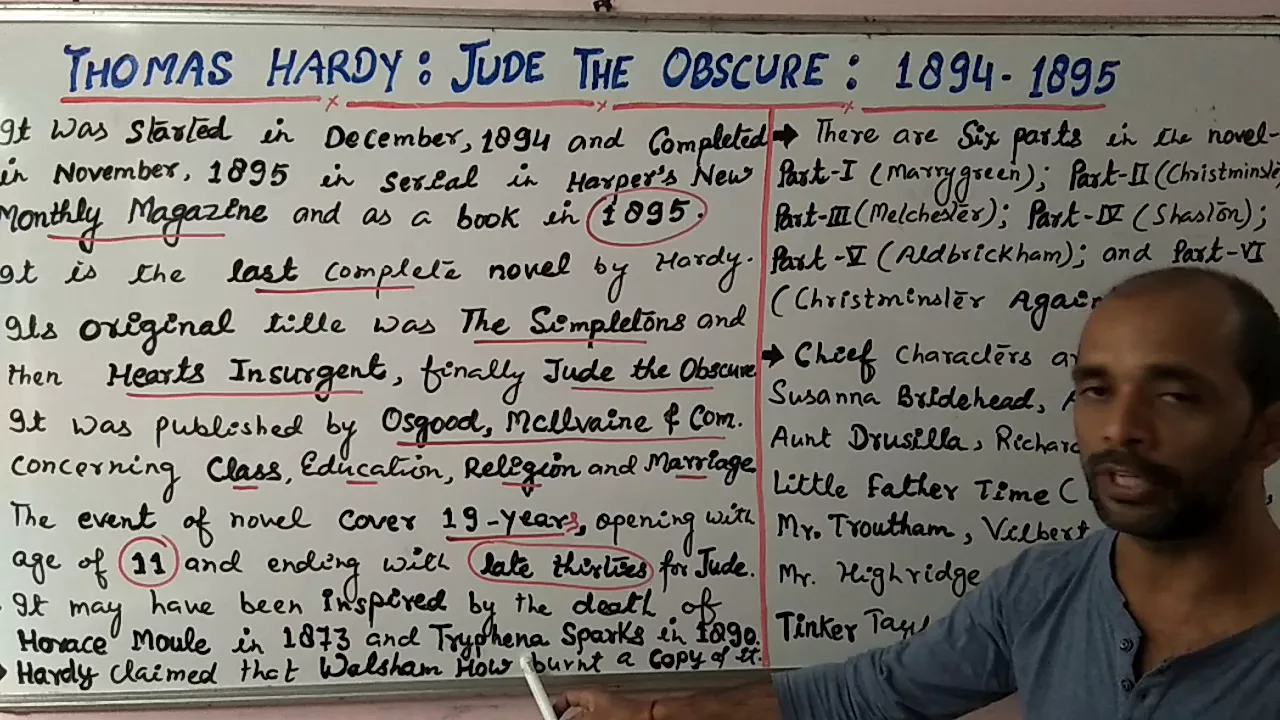 THOMAS HARDY: JUDE THE OBSCURE: 1894-1895
It was started in December, 1894 and Completed
in November, 1895 in serial in Harper's New
Monthly Magazine and as a book in 1895.
It is the last complete novel by Hardy.
Its original title was The Simpletons and
then Hearts Insurgent, finally Jude the Obscure
It was published by Osgood, McIlvaine & Com.
concerning Class, Education, Religion and Marriage
The event of novel cover 19-years, opening with
age of 11 and ending with late thirties for Jude.
It may have been inspired by the death of
Horace Moule in 1873 and Tryphena Sparks in 1890.
→ Hardy claimed that Walsham How burnt a copy of it.
→ There are Six parts in the novel-
Part-I (Marrygreen); Part-II (Christminster
Part-III (Melchester); Part-IV (Shaston);
Part-V (Aldbrickham); and Part-VI
(Christminster Again
→ Chief Characters a
Susanna Bridehead, A
Aunt Drusilla, Richar
Little Father Time (
Mr. Troutham, Vilbert
Mr. Highridge
Tinker Tayl